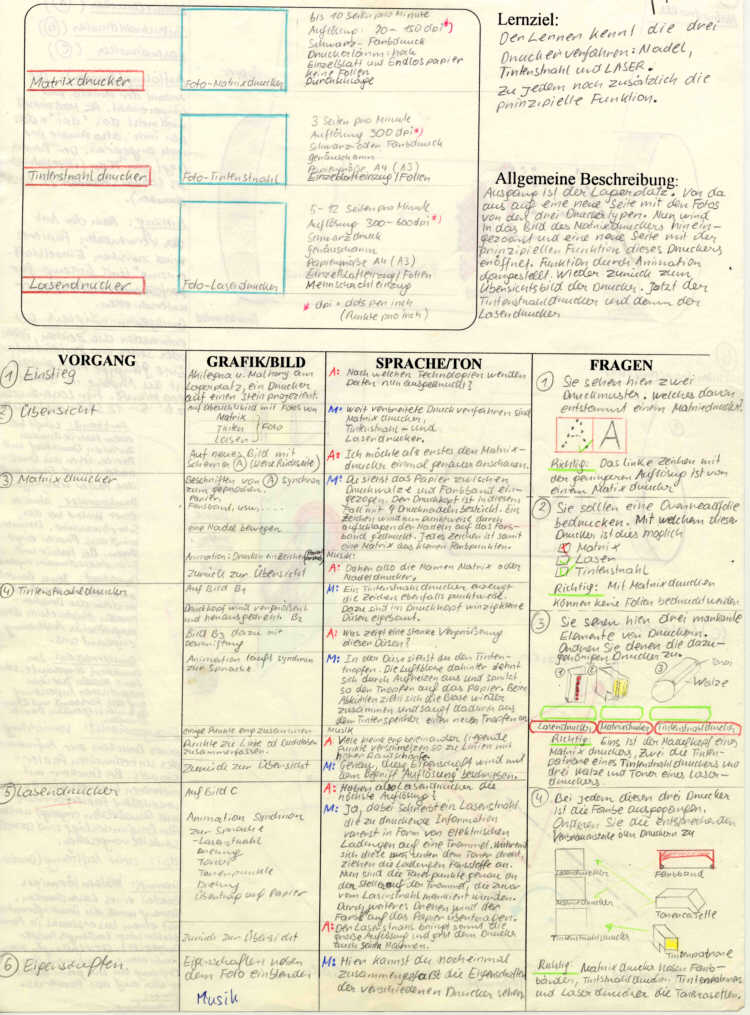 bis 10 Seiten pro Minute
Auflösung: 70 - 150 dpi *)
Schwarz - Farbdruck
Druckerlärm: hoch
Einzelblatt und Endlospapier
keine Folien
Durchschläge
Matrixdrucker
Foto-Matrixdrucker
3 Seiten pro Minute
Auflösung 300 dpi *)
Schwarz oder Farbdruck
geräuscharm
Papiergröße A4 (A3)
Einzelblatteinzug/Folien
Tintenstrahldrucker
Foto-Tintenstrahl
5 - 12 Seiten pro Minute
Auflösung 300-600dpi *)
Schwarzdruck
Geräuscharm
Papiergröße A4 (A3)
Einzelblatteinzug/Folien
Mehrschachteinzug
Laserdrucker
Foto-Laserdrucker
* dpi = dots per inch
(Punkte pro inch)
Lernziel:
Der Lerner kennt die drei
Druckerverfahren: Nadel,
Tintenstrahl und LASER.
Zu jedem noch zusätzlich die
prinzipielle Funktion.
Allgemeine Beschreibung:
Ausgang ist der Lagerplatz. Von da
aus auf eine neue Seite mit den Fotos
von den drei Druckertypen. Nun wird
in das Bild des Matrixdruckers hinein-
gezoomt und eine neue Seite mit der
prinzipiellen Funktion dieses Druckers
eröffnet. Funktion durch Animation
dargestellt. Wieder zurück zum
Übersichtsbild der Drucker. Jetzt der
Tintenstrahldrucker und dann der
Laserdrucker
VORGANG
GRAFIK/BILD
SPRACHE/TON
FRAGEN
① Einstieg
Lagerplatz, ein Drucker
auf einen Stein projeziert.
A: Nach welchen Technologien werden
Daten nun ausgedruckt?
2) Übersicht
Auf Übersichtbild mit Fotos von
Matrix
Tinten
Laser
Foto
Auf neues Bild mit
Schema Ⓐ (siehe Rückseite)
M: weit verbreitete Druckverfahren sind
Matrixdrucker,
Tintenstrahl - und
Laserdrucker.
A: Ich möchte als erstes den Matrix-
drucker einmal genauer anschauen.
③ Matrixdrucker
Beschriften von Ⓐ synchron
zum gesprochen.
Papier
Farbband, usw....
eine Nadel bewegen
Animation: Drucken ein Zeichen
Zurück zur Übersicht
M: Du siehst das Papier zwischen
Druckwalze und Farbband ein-
gezogen. Der Druckkopf ist in diesem
Fall mit 9 Drucknadeln bestückt. Ein
Zeichen wird nun punktweise durch
aufschlagen der Nadeln auf das Farb-
band gedruckt. Jedes Zeichen ist somit
eine Matrix aus kleinen Farbpunkten.
Musik:
A: Daher also die Namen Matrix oder
Nadeldrucker.
④ Tintenstrahldrucker
Auf Bild B1
Druckkopf wird vergrößert
und herausgedreht B2
Bild B3 dazu mit
Animation läuft synchron
zur Sprache
einige Punkte eng zusammen
Punkte zu Linie od Buchstaben
zusammenfassen.
Zurück zur Übersicht
M: Ein Tintenstrahldrucker erzeugt
die Zeichen ebenfalls punktweise.
Dazu sind im Druckkopf winzigkleine
Düsen eingebaut.
A: Was zeigt eine starke Vergrößerung
dieser Düsen?
M: In der Düse siehst du den Tinten-
tropfen. Die Luftblase dahinter dehnt
sich durch Aufheizen aus und spritzt
so den Tropfen auf das Papier. Beim
Abkühlen zieht sich die Blase wieder
zusammen und saugt dadurch aus
dem Tintenspeicher einen neuen Tropfen an.
Musik
A: Viele kleine eng beieinander liegende
Punkte verschmelzen so zu Linien mit
hoher Randschärfe.
M: Genau, diese Eigenschaft wird mit
dem Begriff Auflösung beschrieben.
⑤ Laserdrucker
Auf Bild C
Animation Synchron
zur Sprache
-Laserstrahl
Drehung
Toner
Tonerpunkte
Drehung
Übertrag auf Papier
Zurück zur Übersicht
A: Haben also Laserdrucker die
höchste Auflösung?
M: Ja, dabei schreibt ein Laserstrahl
die zu druckende Information
vorerst in Form von elektrischen
Ladungen auf eine Trommel. Während
sich diese nun unter dem Toner dreht,
ziehen die Ladungen Farbstoffe an.
Nun sind die Tonerpunkte genau an
der Stelle auf der Trommel, die zuvor
vom Laserstrahl markiert wurden.
Durch weiteres Drehen wird der
Farbe auf das Papier übertragen.
A: Der Laserstrahl bringt somit die
große Auflösung und gibt dem Drucker
auch seinen Namen.
⑥ Eigenschaften
Eigenschaften neben
dem Foto einblenden
Musik
M: Hier kannst du noch einmal
zusammengefaßt die Eigenschaften
der verschiedenen Drucker sehen
① Sie sehen hier zwei
Druckmuster. Welches davon
entstammt einem Matrixdrucker?
A A
Richtig: Das linke Zeichen mit
der geringeren Auflösung ist von
einem Matrixdrucker
② Sie sollen eine Overheadfolie
bedrucken. Mit welchem dieser
Drucker ist dies möglich
Matrix
Laser
Tintenstrahl
Richtig: Mit Matrixdruckern
können keine Folien bedruckt werden.
③ Sie sehen hier drei markante
Elemente von Druckern.
Ordnen Sie denen die dazu-
gehörigen Drucker zu.
① ② ③
Walze
Laserdrucker
Matrixdrucker
Tintenstrahldrucker
Richtig: Eins ist der Nadelkopf eines
Matrixdruckers, Zwei die Tinten-
patrone eines Tintenstrahldruckers und
drei Walze und Toner eines Laser-
druckers.
④ Bei jedem dieser drei Drucker
ist die Farbe ausgegangen.
Ordnen Sie die entsprechenden
den Druckern zu
Laserdrucker
Farbband
Tonercasette
Tintenstrahldrucker
Tintenpatrone
Richtig: Matrixdrucker haben Farb-
bänder, Tintstrahldrucker Tintenpatronen
und Laserdrucker die Tonercasetten.